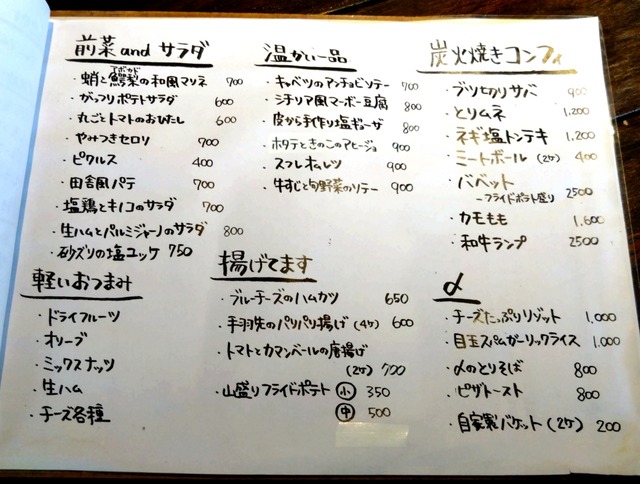 前菜 and サラダ
・蛸と鰐梨の和風マリネ 700
アボカド
・がっつりポテトサラダ 600
・丸ごとトマトのおひたし 600
・やみつきセロリ 700
・ピクルス 400
・田舎風パテ 700
・塩鶏とキノコのサラダ 700
・生ハムとパルミジャーノのサラダ 800
・砂ズリの塩ユッケ 750
軽いおつまみ
・ドライフルーツ
・オリーブ
・ミックスナッツ
・生ハム
・チーズ各種
温かい一品
・キャベツのアンチョビソテー 700
・シチリア風マーボー豆腐 800
・皮から手作り塩ギョーザ 800
・ホタテときのこのアヒージョ 900
・スフレオムレツ 900
・牛すじと旬野菜のソテー 900
揚げてます
・ブルーチーズのハムカツ 650
・手羽先のパリパリ揚げ (4ケ) 600
・トマトとカマンベールの唐揚げ
(2ケ) 700
・山盛りフライドポテト 小 350
中 500
炭火焼きコンフィ
・ブツ切りサバ 900
・とりムネ 1,200
・ネギ塩トンテキ 1,200
・ミートボール (2ケ) 400
・バベット
ーフライドポテト盛り 2500
・カモもも 1,600
・和牛ランプ 2500
〆
・チーズたっぷりリゾット 1,000
・目玉スパムガーリックライス 1,000
・〆のとりそば 800
・ピザトースト 800
・自家製バケット (2ケ) 200